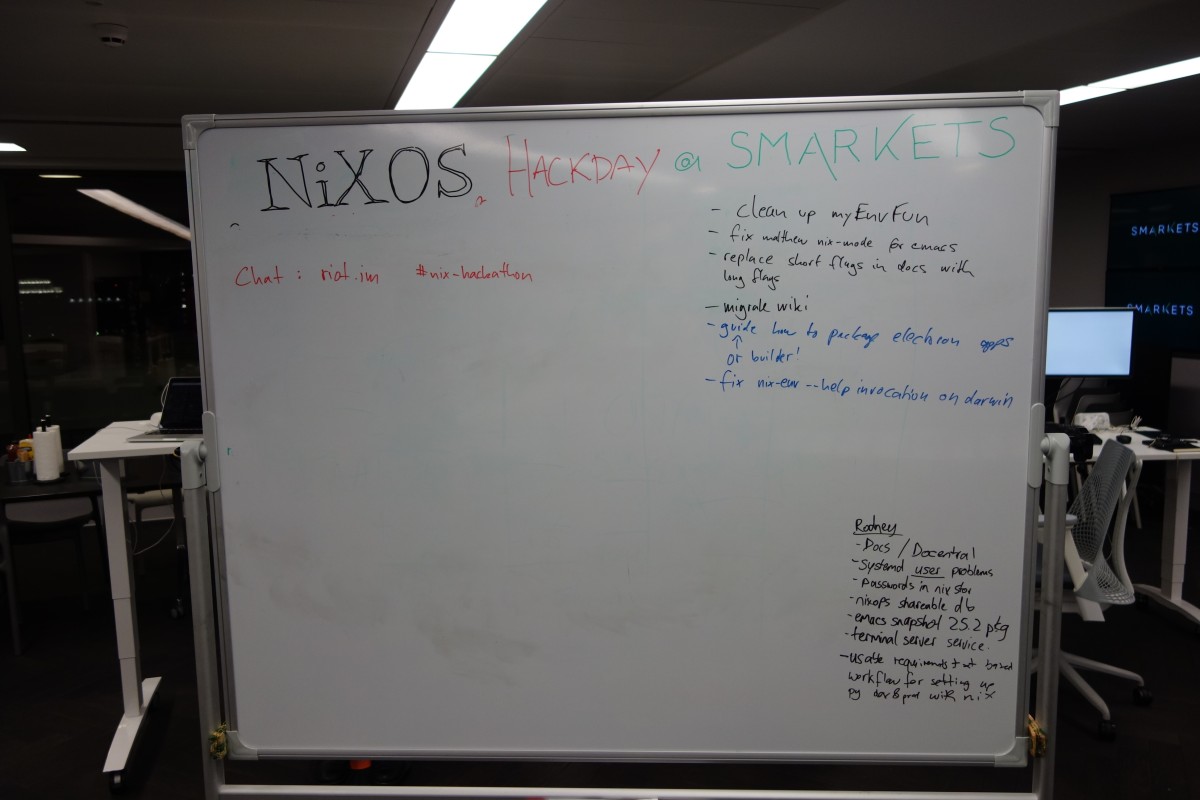 NiXOS HACKDAY @ SMARKETS
- clean up myEnvFun
- fix matthew nix-mode for emacs
- replace short flags in docs with
long flags
Chat : riot.im #nix-hackathon
- migrate wiki
- guide how to package electron apps
or builder!
- fix nix-env --help invocation on darwin
SMARKETS
SMARKETS
Rodney
- Docs / Docentral
- Systemd user problems
- passwords in nix stor
- nixops shareable db
- emacs snapshot 25.2 pkg
- terminal server service.
- usable requirements txt based
workflow for setting up
py dev & prod with nix